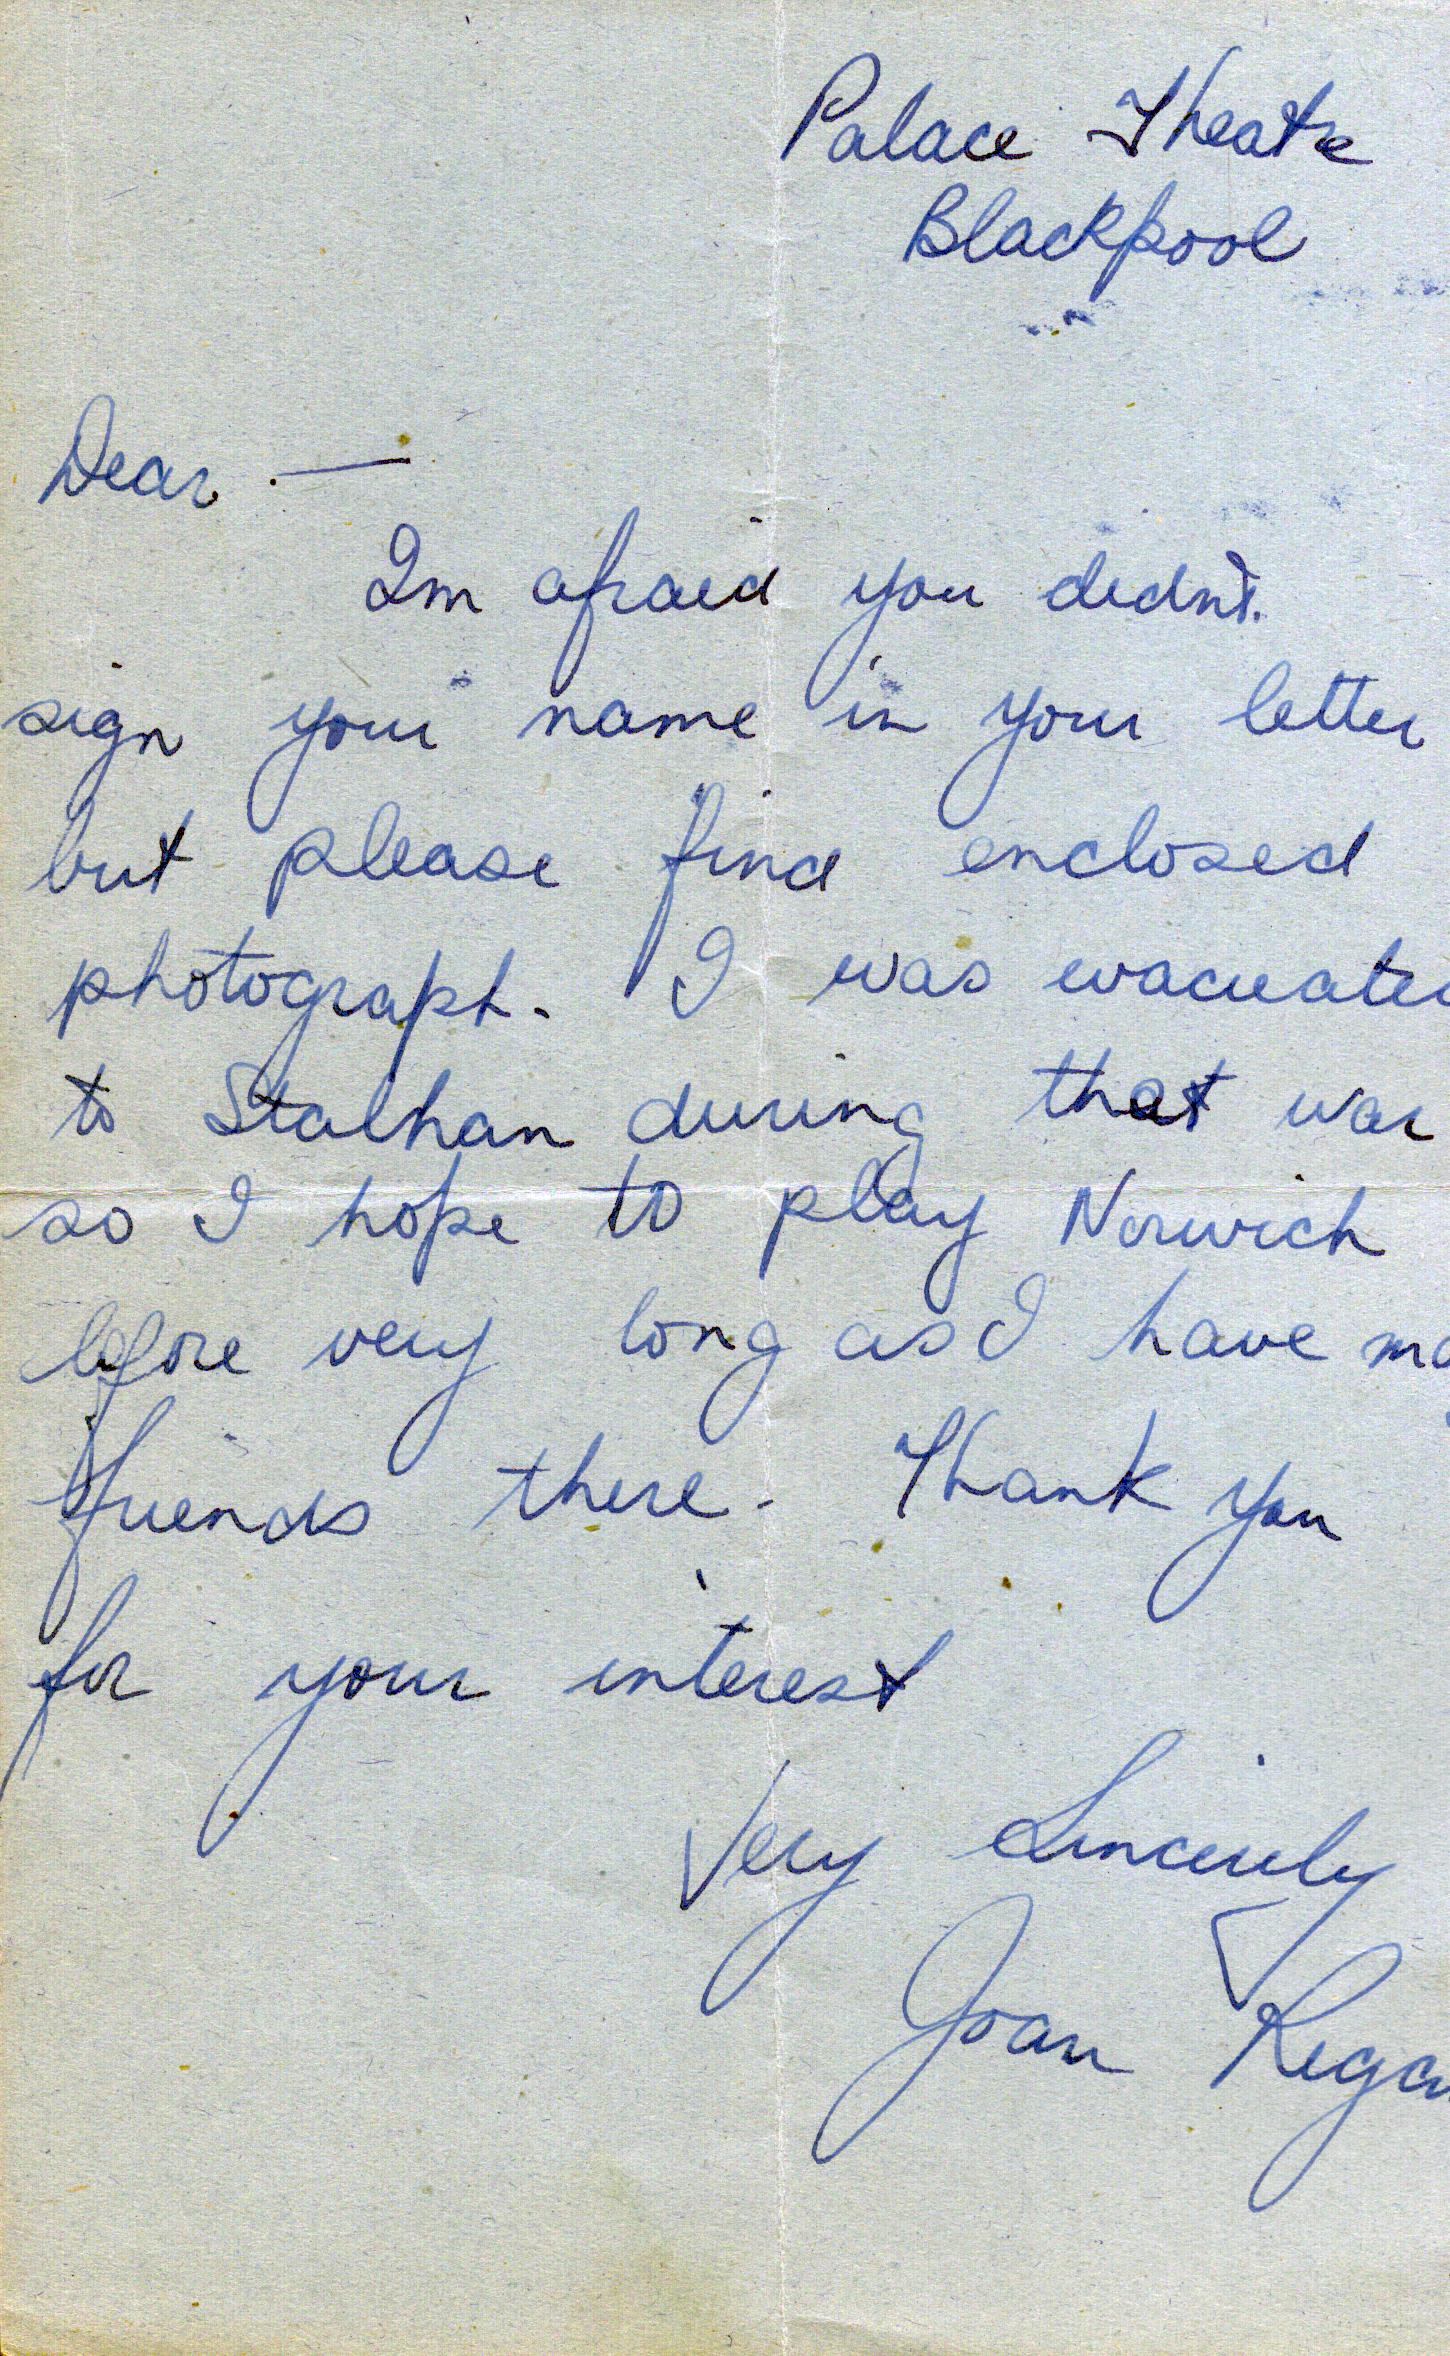 Palace Theatre
Blackpool
Dear. —
Im afraid you didn't.
sign your name in your letter
but please find enclosed
photograph. I was evacuated
to Stalhan during that war
so I hope to play Norwich
before very long as I have
friends there. Thank you
for your interest
Very Sincerely
Joan Regan